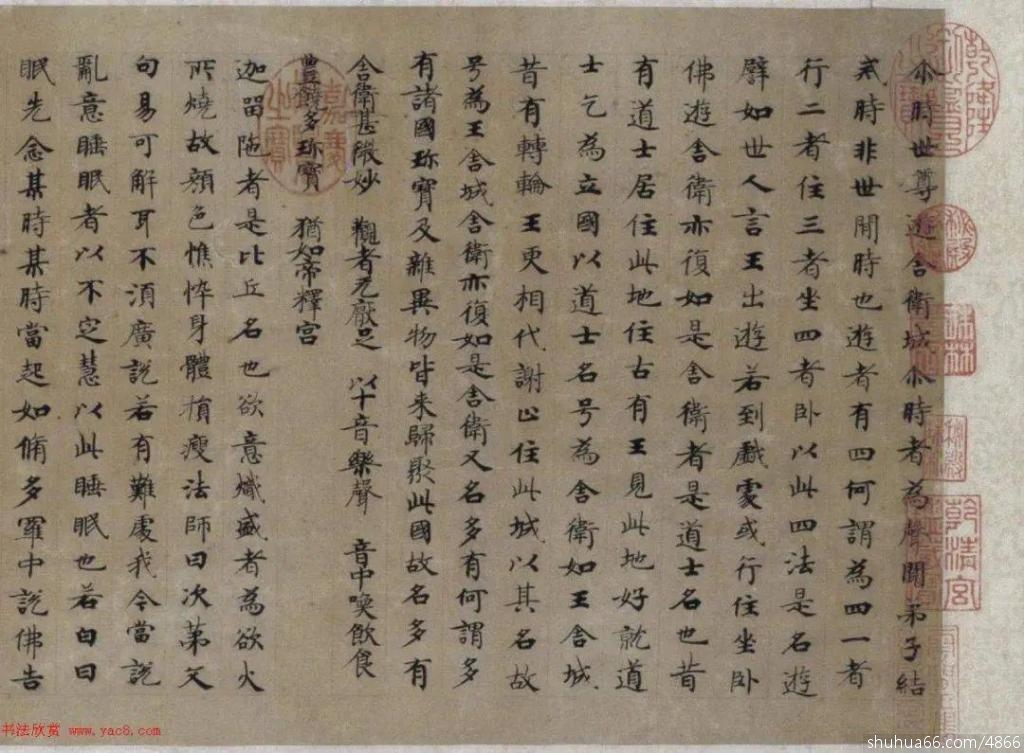 尒時世尊遊舍衛城尒時者為聲聞弟子結
戒時非世間時也遊者有四何謂為四一者
行二者住三者坐四者卧以此四法是名遊
譬如世人言王出遊若到戲處或行住坐卧
佛遊舍衛亦復如是舍衛者是道士名也昔
有道士居住此地住古有王見此地好就道
士乞為立國以道士名号為舍衛如王舍城
昔有轉輪王更相代謝止住此城以其名故
号為王舍城舍衛亦復如是舍衛又名多有何謂多
有諸國珎寶及雜異物皆来歸聚此國故名多有
舍衛甚微妙 觀者无厭足 以十音樂聲 音中喚飲食
豐饒多珎寶 猶如帝釋宫
迦留陁者是比丘名也欲意熾盛者為欲火
所燒故顔色憔悴身體損瘦法師曰次第文
句易可解耳不湏廣説若有難處我今當説
亂意睡眠者以不定慧以此睡眠也若白日
眠先念某時某時當起如脩多羅中説佛告
乾清宮
书法欣赏 www.yac8.com
shuhua66.com/4866